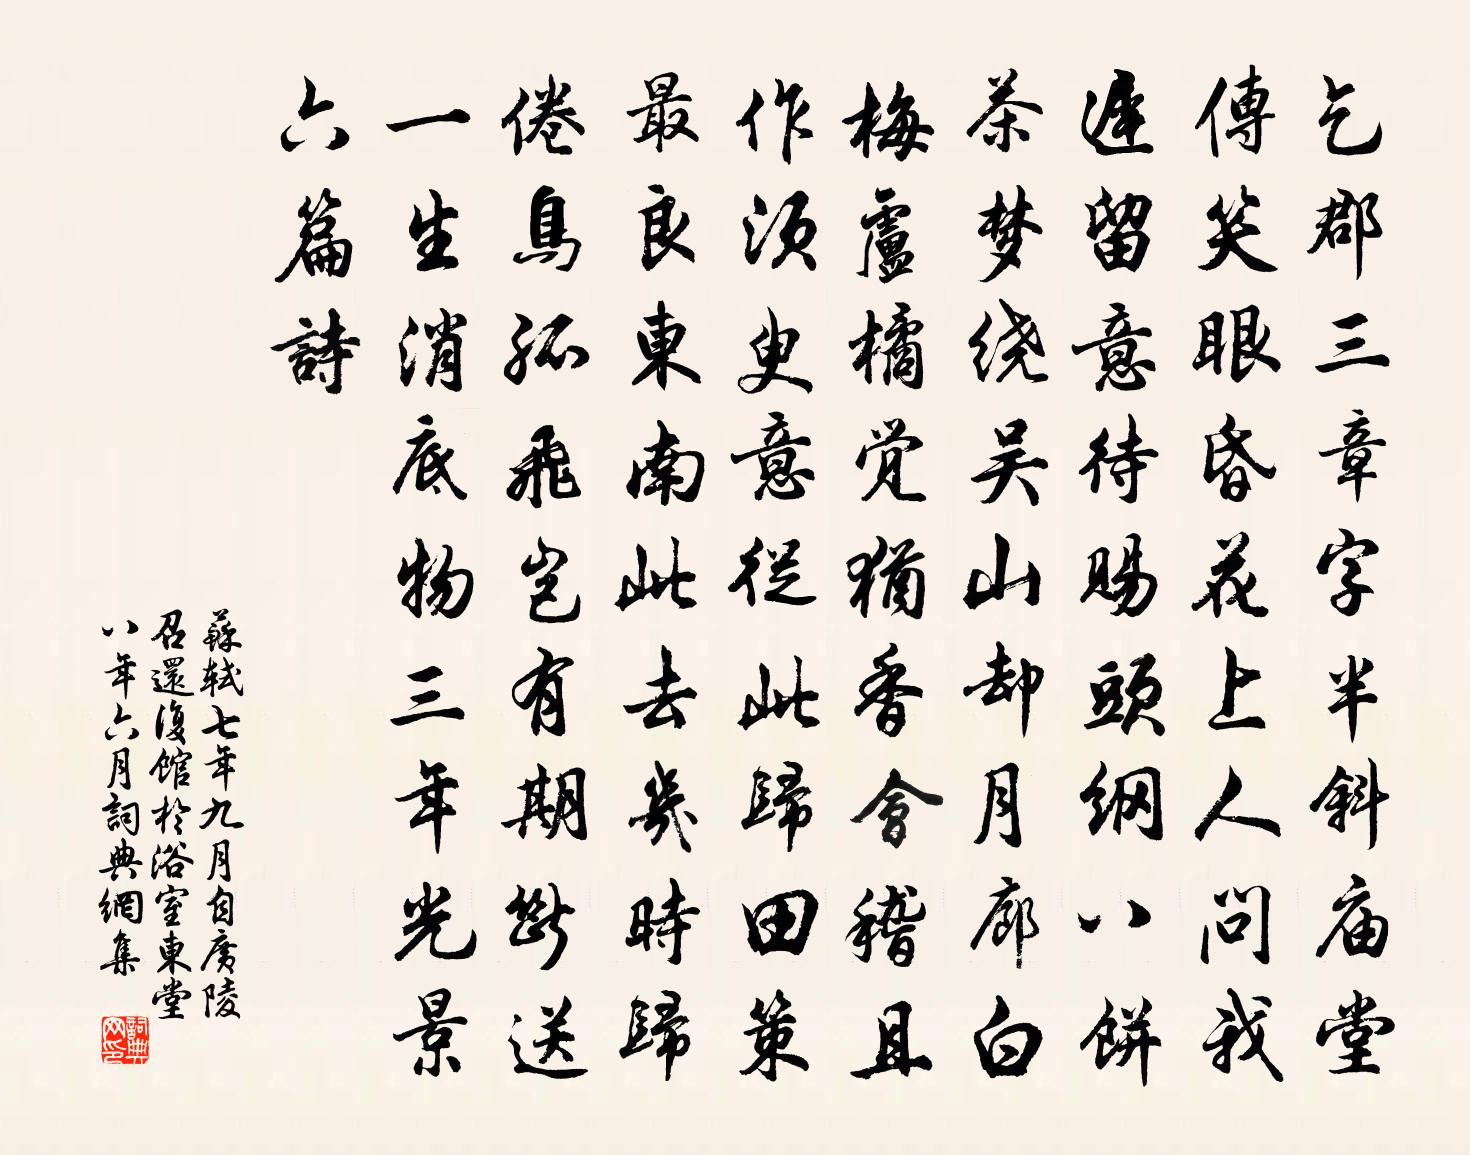 乞郡三章字半斜庙堂
傳笑眼昏花上人問我
遲留意待賜頭綱八餅
茶梦绕吴山却月廊白
梅盧橘觉猶香會稽且
作須臾意從此歸田策
最良東南此去幾時歸
倦鳥孤飛豈有期斷送
一生消底物三年光景
六篇詩
蘇軾七年九月自廣陵
召還復館於浴室東堂
八年六月詞典網集
詞典网印